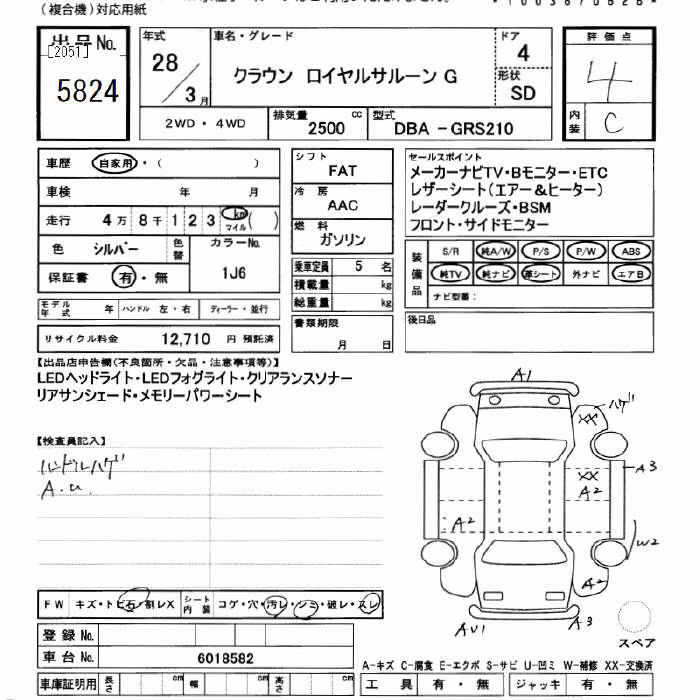 (複合機)対応用紙
出品No.
[2051]
5824
年式
28/3月
車名・グレード
クラウン ロイヤルサルーン G
ドア
4
形状
SD
評価点
4
内装
C
2WD・4WD
排気量
2500 cc
型式
DBA -GRS210
車歴 自家用・( )
車検 年 月
走行 4万 8千 1 2 3 km マイル ( )
色 シルバー 色替 カラーNo.
1J6
保証書 有・無
モデル年式 年 ハンドル 左・右 ディーラー・並行
リサイクル料金 12,710 円 預託済
シフト
FAT
冷房
AAC
燃料
ガソリン
乗車定員 5 名
積載量 kg
総重量 kg
書類期限
月 日
セールスポイント
メーカーナビTV・Bモニター・ETC
レザーシート(エアー&ヒーター)
レーダークルーズ・BSM
フロント・サイドモニター
装備品
S/R 純A/W P/S P/W ABS
純TV 純ナビ 革シート 外ナビ エアB
ナビ型番:
後日品
【出品店申告欄(不良箇所・欠品・注意事項等)】
LEDヘッドライト・LEDフォグライト・クリアランスソナー
リアサンシェード・メモリーパワーシート
【検査員記入】
ハンドルハゲ
A.u.
A1
XX ハゲ
A3
XX
A2
A2
W2
A2
AU1
A3
スペア
FW キズ・トビ石・割レX シート内装 コゲ・穴・汚レ・シミ・破レ・スレ
登録No.
車台No. 6018582
車庫証明用 長さ cm 幅 cm 高さ cm
A-キズ C-腐食 E-エクボ S-サビ U-凹ミ W-補修 XX-交換済
工具 有・無 ジャッキ 有・無